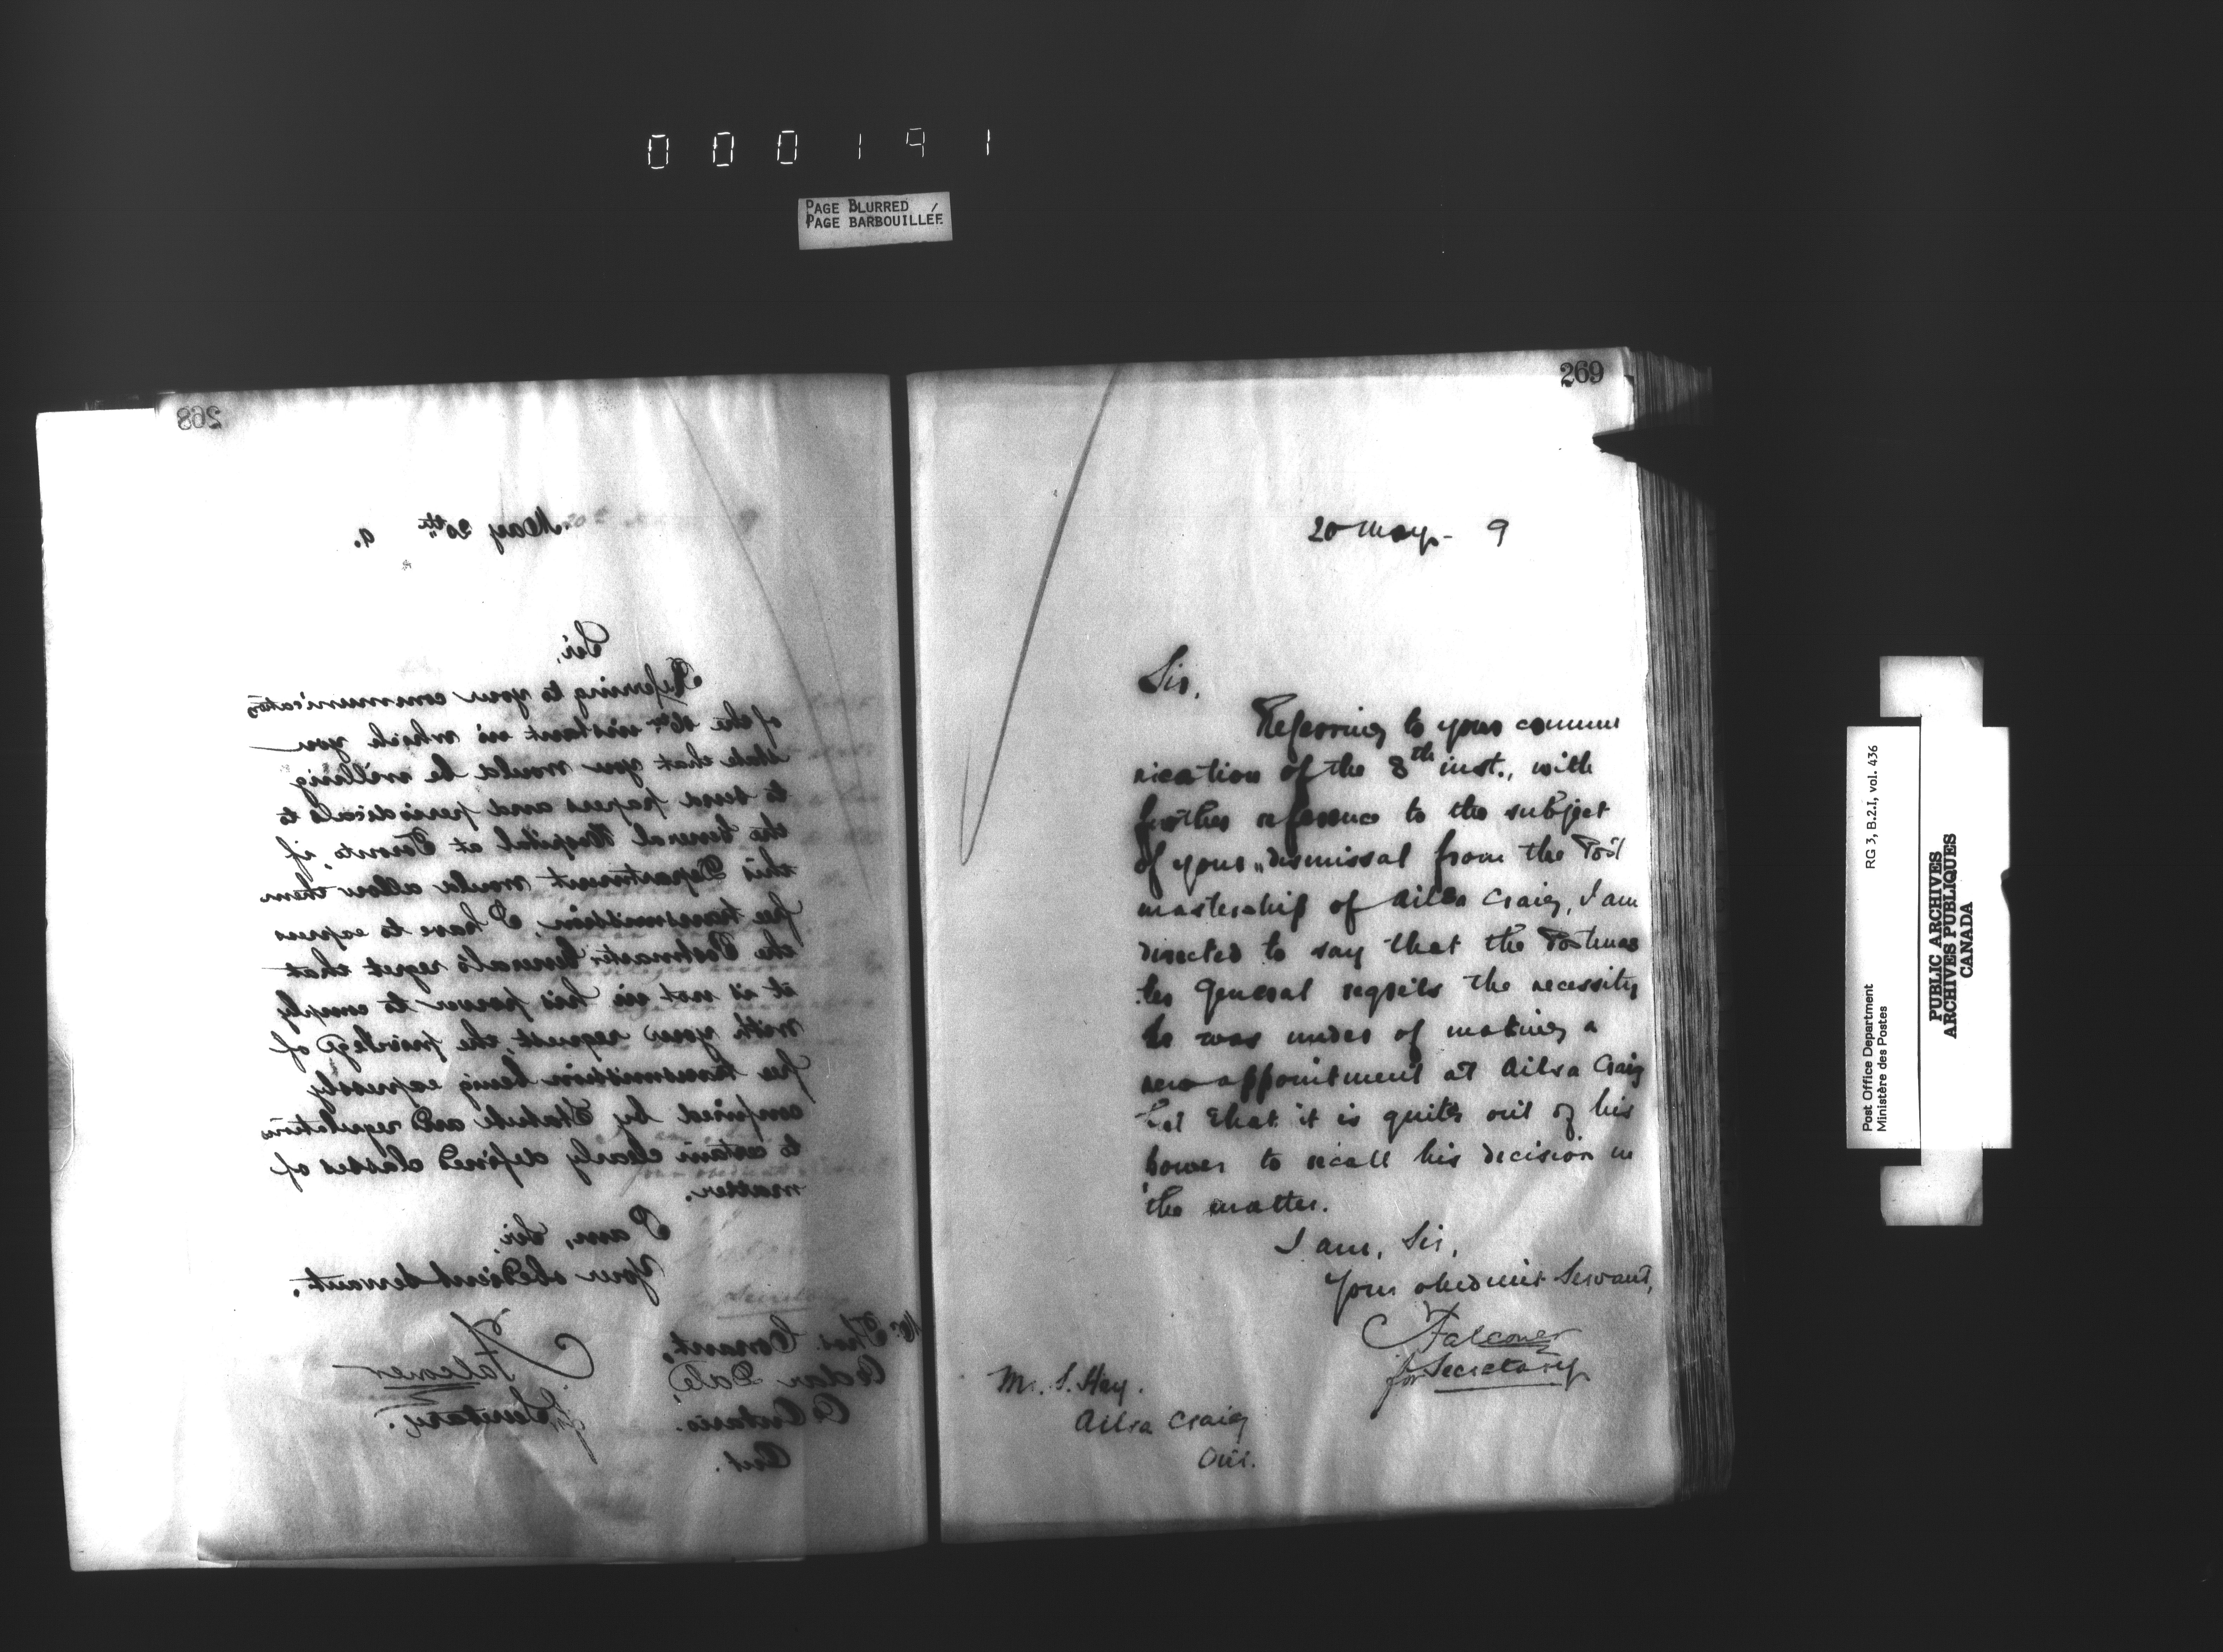 000191
PAGE BLURRED
PAGE BARBOUILLÉE
268
May 20th 9.
Sir,
Referring to your communication
of the 16th instant in which you
state that you would be willing
to send papers and periodicals to
the General Hospital at Toronto, if
this Department would allow them
free transmission, I have to express
the Postmaster General's regret that
it is not in his power to comply
with your request, the privilege of
free transmission being expressly
confined by Statute and regulations
to certain clearly defined classes of
matter.
I am, Sir,
Your obedient servant,
Falconer
for Secretary.
Mr. Thos. Conant,
Cedar Dale,
Co Ontario.
Ont.
269
20 May - 9
Sir,
Referring to your commu
nication of the 8th inst., with
further reference to the subject
of your dismissal from the Post
mastership of Ailsa Craig, I am
directed to say that the Postmas
ter General regrets the necessity
he was under of making a
new appointment at Ailsa Craig
but that it is quite out of his
power to recall his decision in
the matter.
I am, Sir,
Your obedient Servant,
Falconer
for Secretary
Mr. S. Hay.
Ailsa Craig
Ont.
Post Office Department
Ministère des Postes
RG 3, B.2.I, vol. 436
PUBLIC ARCHIVES
ARCHIVES PUBLIQUES
CANADA